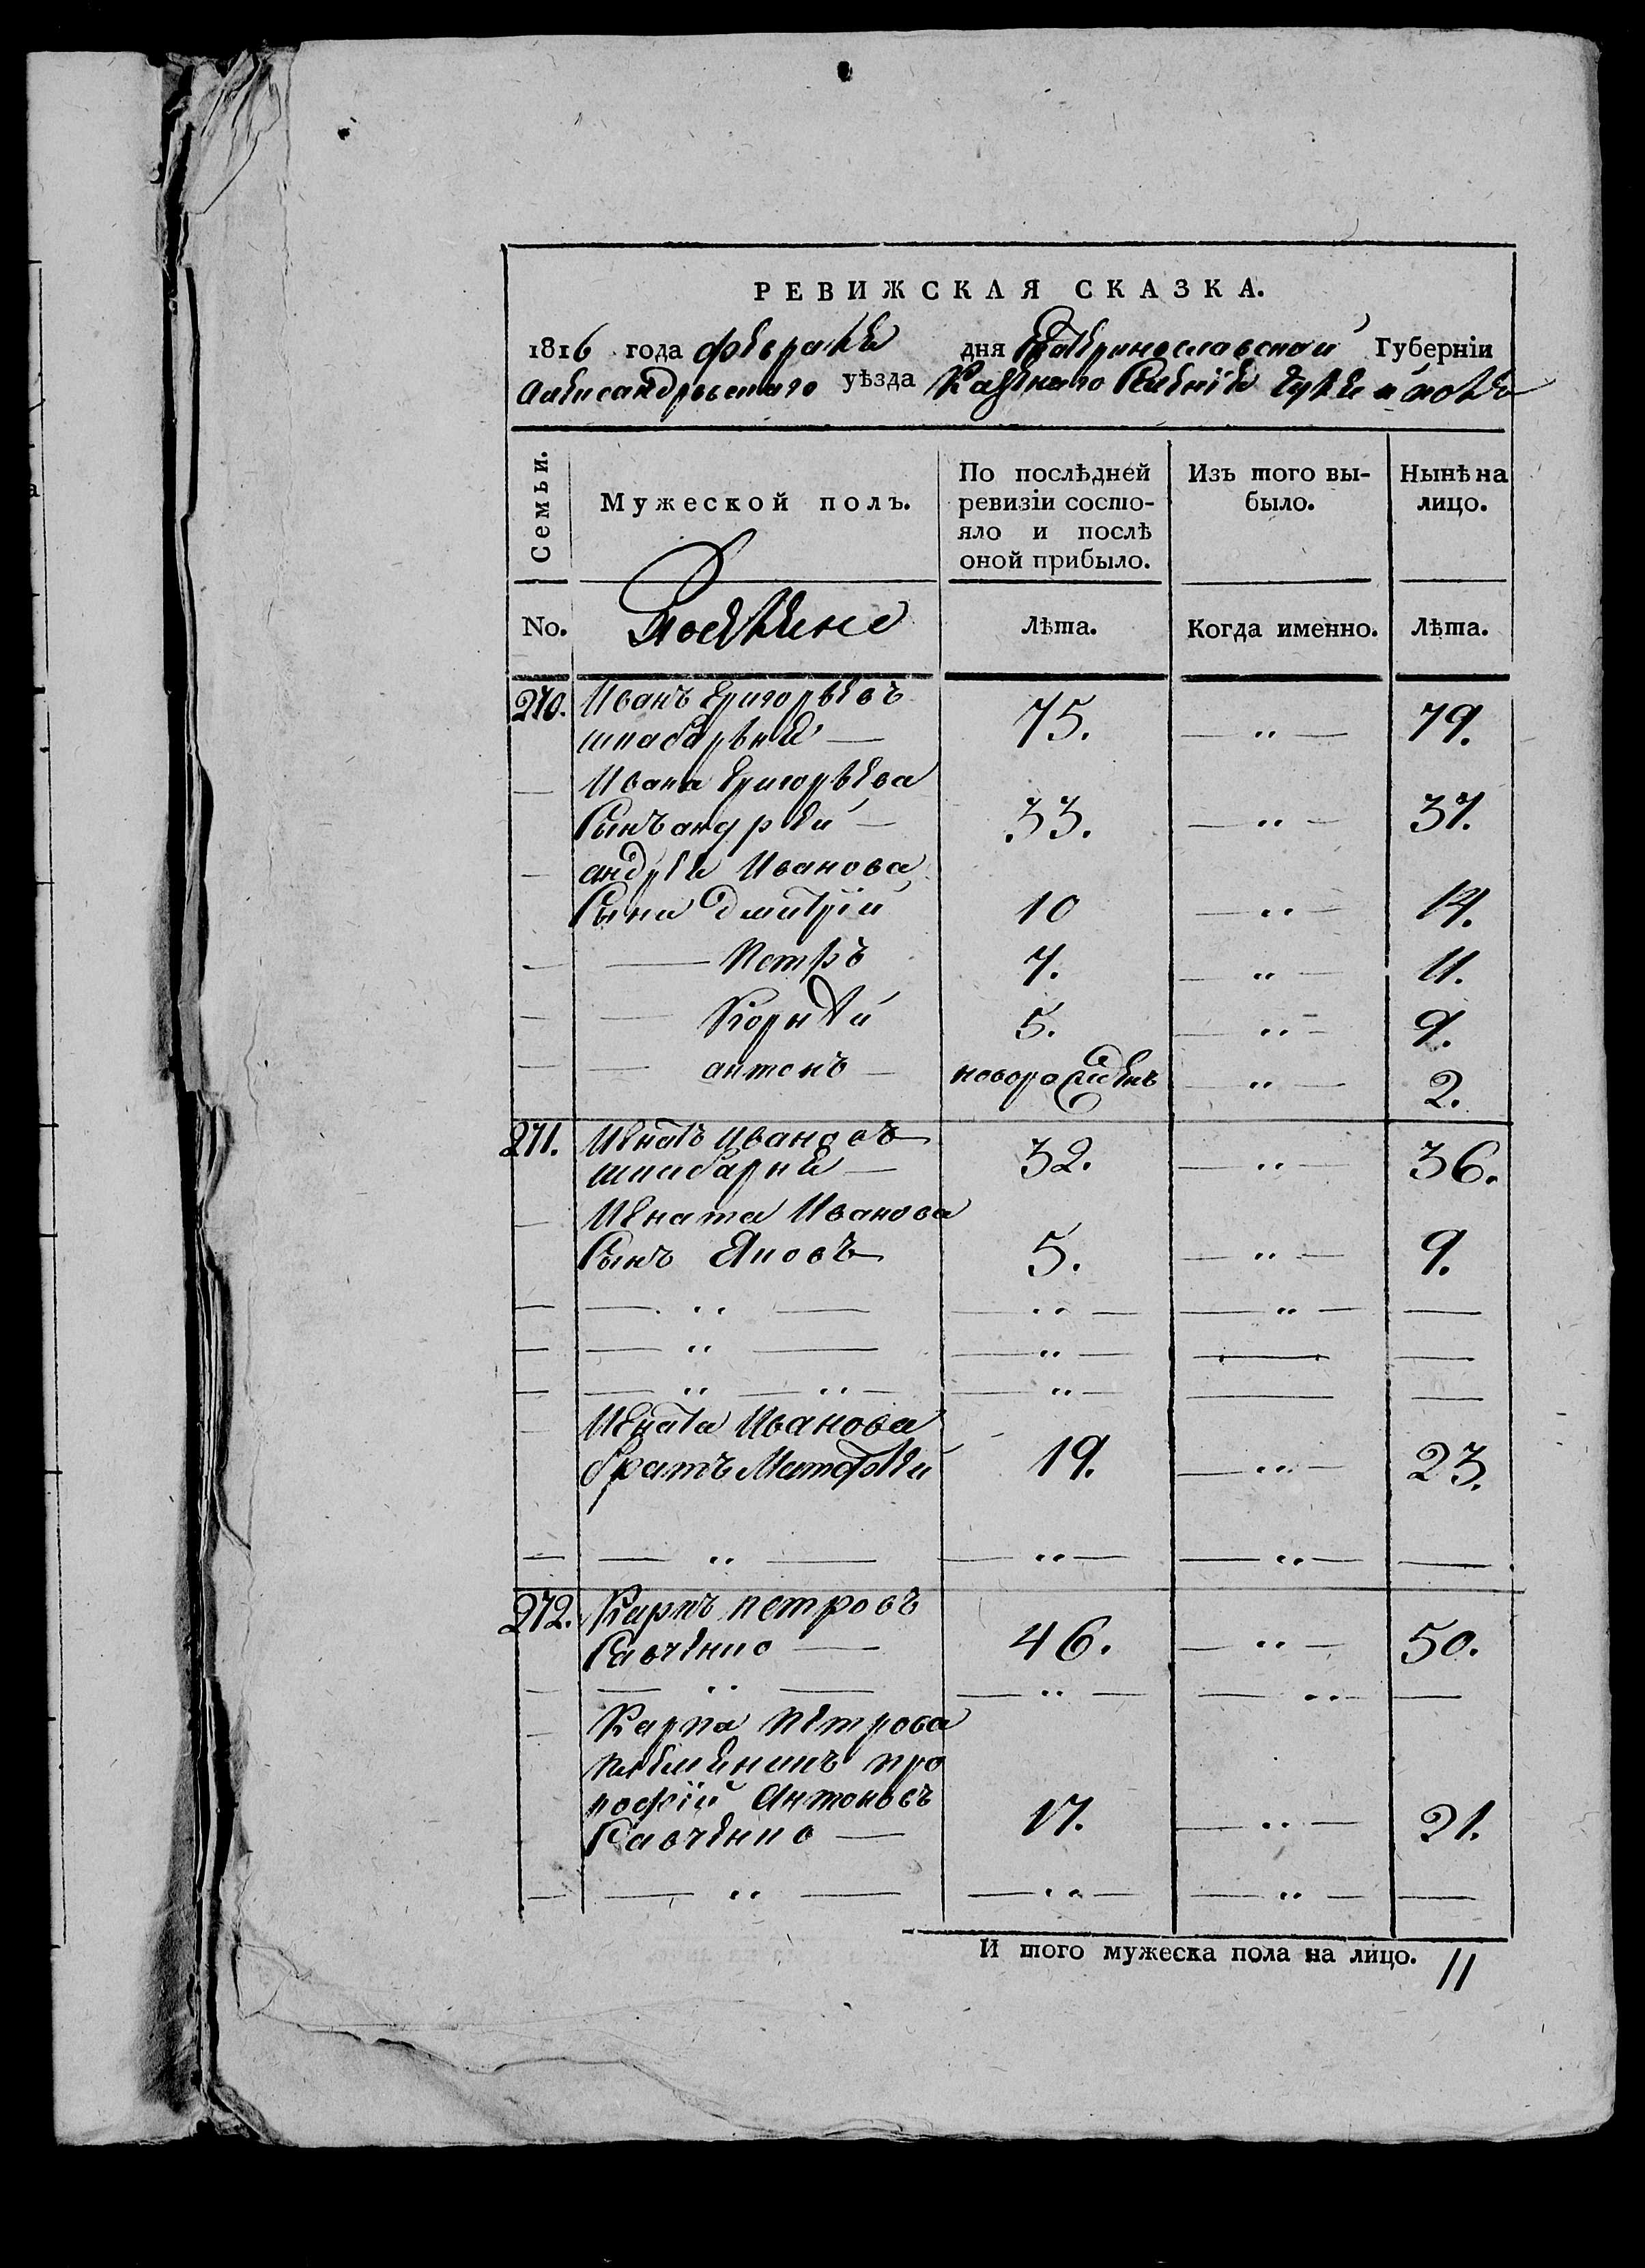 РЕВИЖСКАЯ СКАЗКА.
1816 года февраля дня Екатеринославской Губерніи
Александровского уѣзда Казенного Селенія Гуляйполя
Семьи.
Мужеской полъ.
По послѣдней
ревизіи состо-
яло и послѣ
оной прибыло.
Изъ того вы-
было.
Нынѣ на
лицо.
No.
Поселяне
Лѣта.
Когда именно.
Лѣта.
270. Иванъ Григорьевъ
шпаборьня — 75. — „ — 79.
— Ивана Григорьева
Сынъ андрей — 33. — „ — 37.
— андрея Иванова
Сыни Дмитрій 10 — „ — 14.
— — Петръ 7. — „ — 11.
— — Корнѣй 5. — „ — 9.
— — антонъ — новорожденъ — „ — 2.
271. Игнатъ Ивановъ
шпаборня — 32. — „ — 36.
— Игната Иванова
Сынъ Яковъ 5. — „ — 9.
— — „ — — „ — — „ — —
— — „ — — „ — — —
— — „ — „ — — „ — — —
— Игната Иванова
братъ Матфей 19. — „ — 23.
— — „ — — „ — — „ — —
272. Карпъ петровъ
Савченко — 46. — „ — 50.
— — „ — — „ — — „ — —
— Карпа петрова
племенникъ про
кофій Антоновъ
Савченко — 17. — „ — 21.
— — „ — — „ — — „ — —
И того мужеска пола на лицо. 11